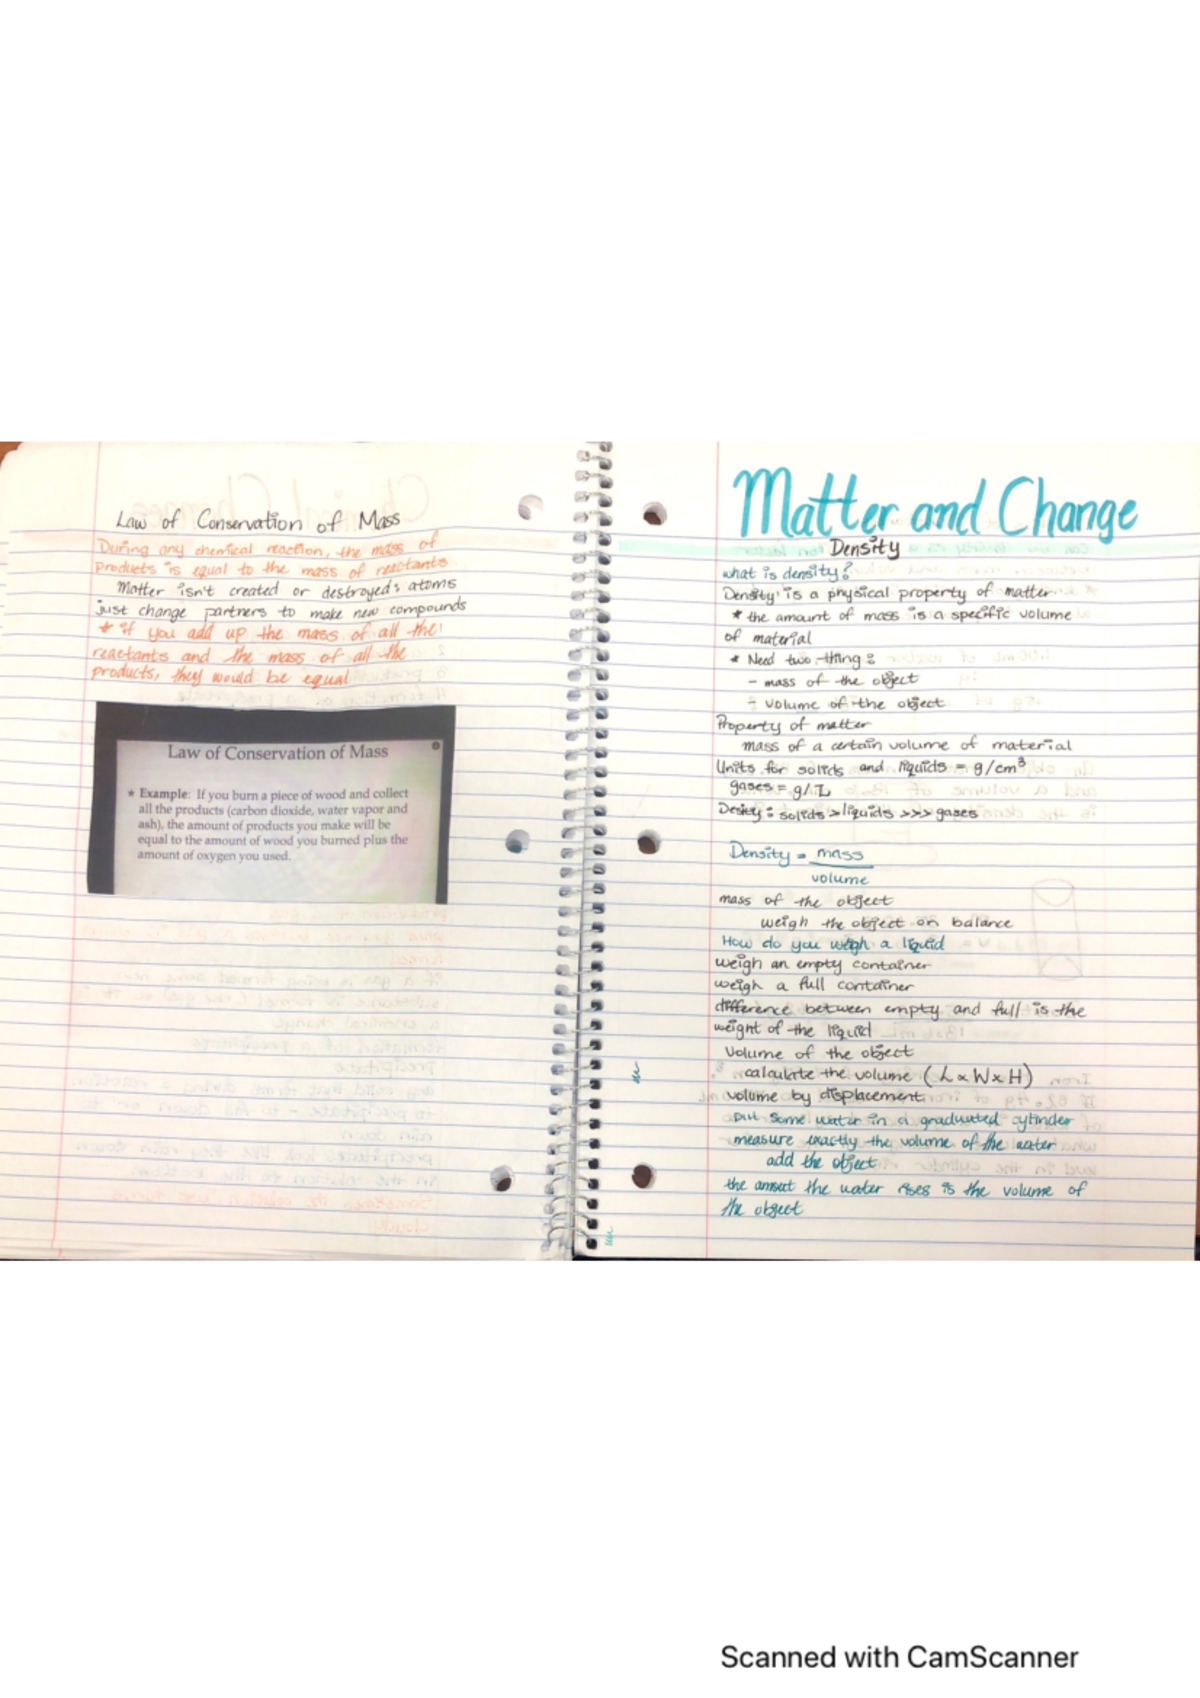 Law of Conservation of Mass
During any chemical reaction, the mass of
products is equal to the mass of reactants
Matter isn't created or destroyed: atoms
just change partners to make new compounds
* if you add up the mass of all the
reactants and the mass of all the
products, they would be equal
Law of Conservation of Mass
* Example: If you burn a piece of wood and collect
all the products (carbon dioxide, water vapor and
ash), the amount of products you make will be
equal to the amount of wood you burned plus the
amount of oxygen you used.
Matter and Change
Density
what is density?
Density is a physical property of matter
* the amount of mass is a specific volume
of material
* Need two thing:
- mass of the object
- volume of the object
Property of matter
mass of a certain volume of material
Units for solids and liquids = g/cm³
gases = g/L
Desity: solids > liquids >>> gases
Density = mass
volume
mass of the object
weigh the object on balance
How do you weigh a liquid
weigh an empty container
weigh a full container
difference between empty and full is the
weight of the liquid
Volume of the object
calculate the volume (L x W x H)
volume by displacement
put some water in a graduated cylinder
measure exactly the volume of the water
add the object
the amount the water rises is the volume of
the object
Scanned with CamScanner